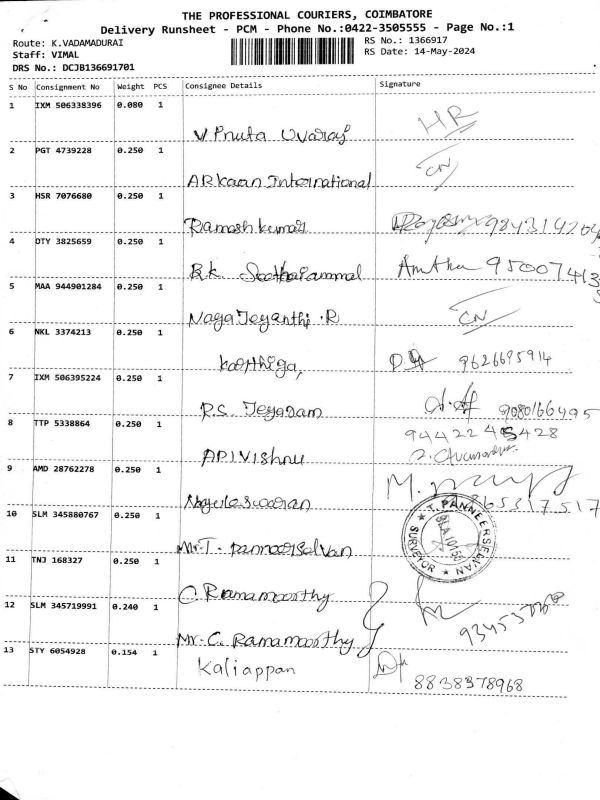 THE PROFESSIONAL COURIERS, COIMBATORE
Delivery Runsheet - PCM - Phone No.:0422-3505555 - Page No.:1
Route: K.VADAMADURAI
RS No.: 1366917
Staff: VIMAL
RS Date: 14-May-2024
DRS No.: DCJB136691701
S No Consignment No Weight PCS Consignee Details Signature
1 IXM 506338396 0.080 1
HR
2 PGT 4739228 0.250 1
CN
ARkaan International
3 HSR 7076680 0.250 1
Ramesh kumar
4 OTY 3825659 0.250 1
R.K. Seetharammal
5 MAA 944901284 0.250 1
Naga Jeyanthi .R CN
6 NKL 3374213 0.250 1
Karthiga, 9626695914
7 IXM 506395224 0.250 1
P.S. Jeyaram 9080166495
8 TTP 5338864 0.250 1
APIVishnu
9 AMD 28762278 0.250 1
Nageleswaran
10 SLM 345880767 0.250 1
T. PANNEERSELVAN
SURVEYOR
11 TNJ 168327 0.250 1
C. Ramamoorthy
12 SLM 345719991 0.240 1
Mr. C. Ramamoorthy
13 STY 6054928 0.154 1
Kaliappan
8838378968